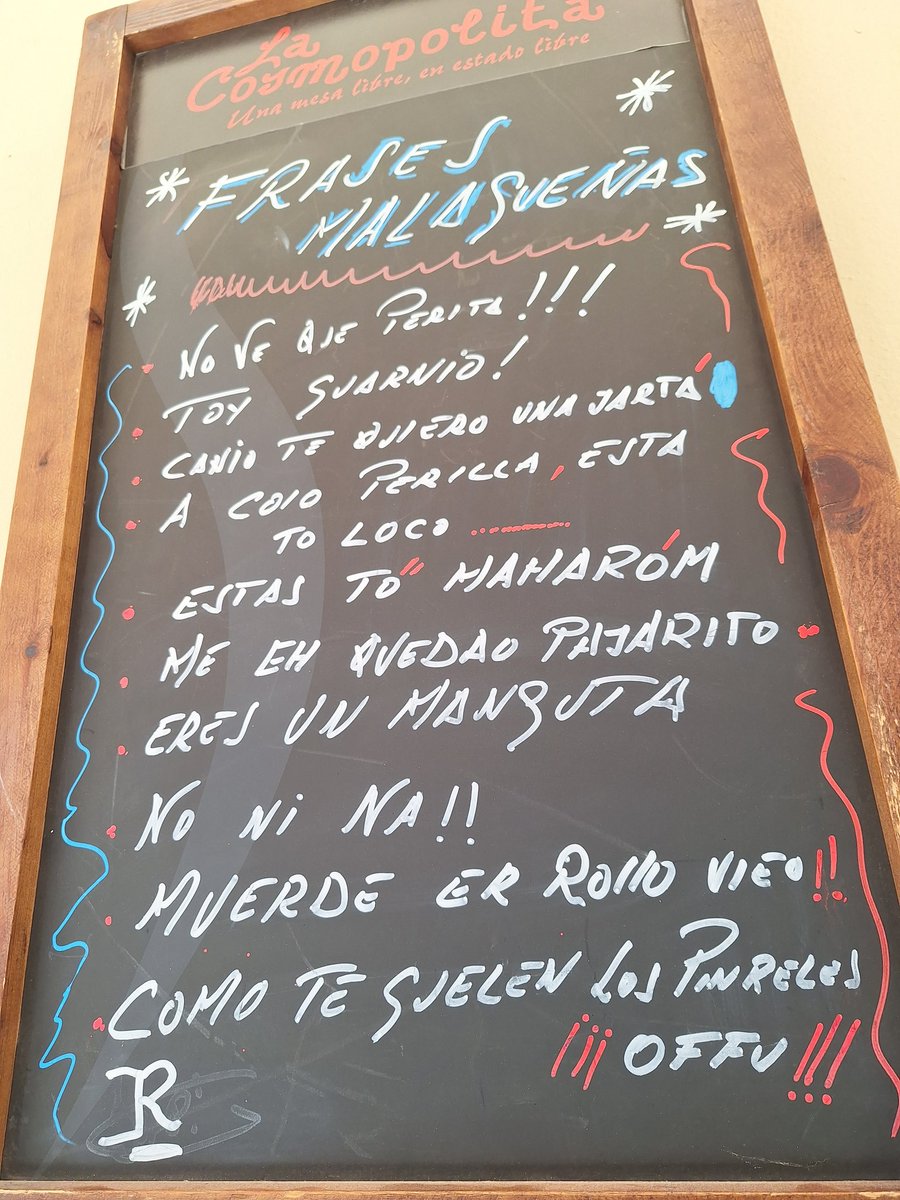 La
Cosmopolita
Una mesa libre, en estado libre
FRASES
MALAGUEÑAS
NO VE QUE PERITA!!!
TOY GUARNIO!
CANIO TE QUIERO UNA JARTÁ
A COIO PERILLA, ESTA
TO LOCO ..........
ESTAS TÓ MAHARÓM
ME EH QUEDAO PAJARITO
ERES UN MANGUTA
NO NI NA!!
MUERDE ER ROLLO VIEO!!
COMO TE GUELEN LOS PINRELES
¡¡¡ OFFU !!!
R